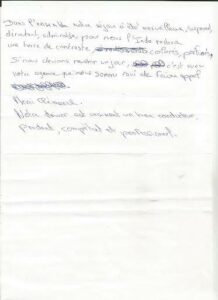 Dans l'ensemble notre séjour a été merveilleux, superbe,
dépaysant, admirable, pour nous l'Inde restera
une terre de contraste, colorés, parfums,
Si nous devons revenir un jour, c'est avec
votre agence que nous serons ravi de faire appel
Merci
Notre driver est vraiment un bon conducteur
prudent, compétent et professionnel.